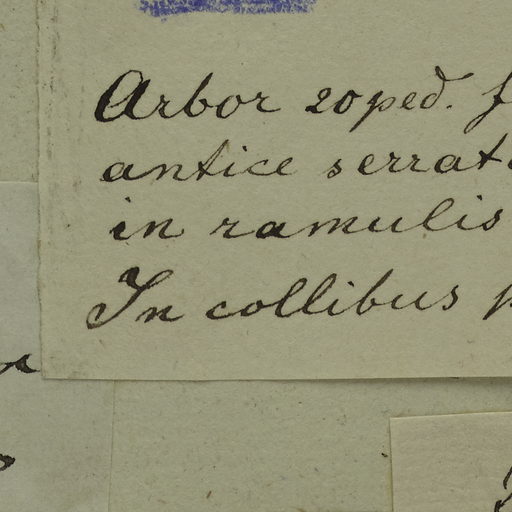 Arbor 20 ped. f
antice serrat
in ramulis
In collibus p